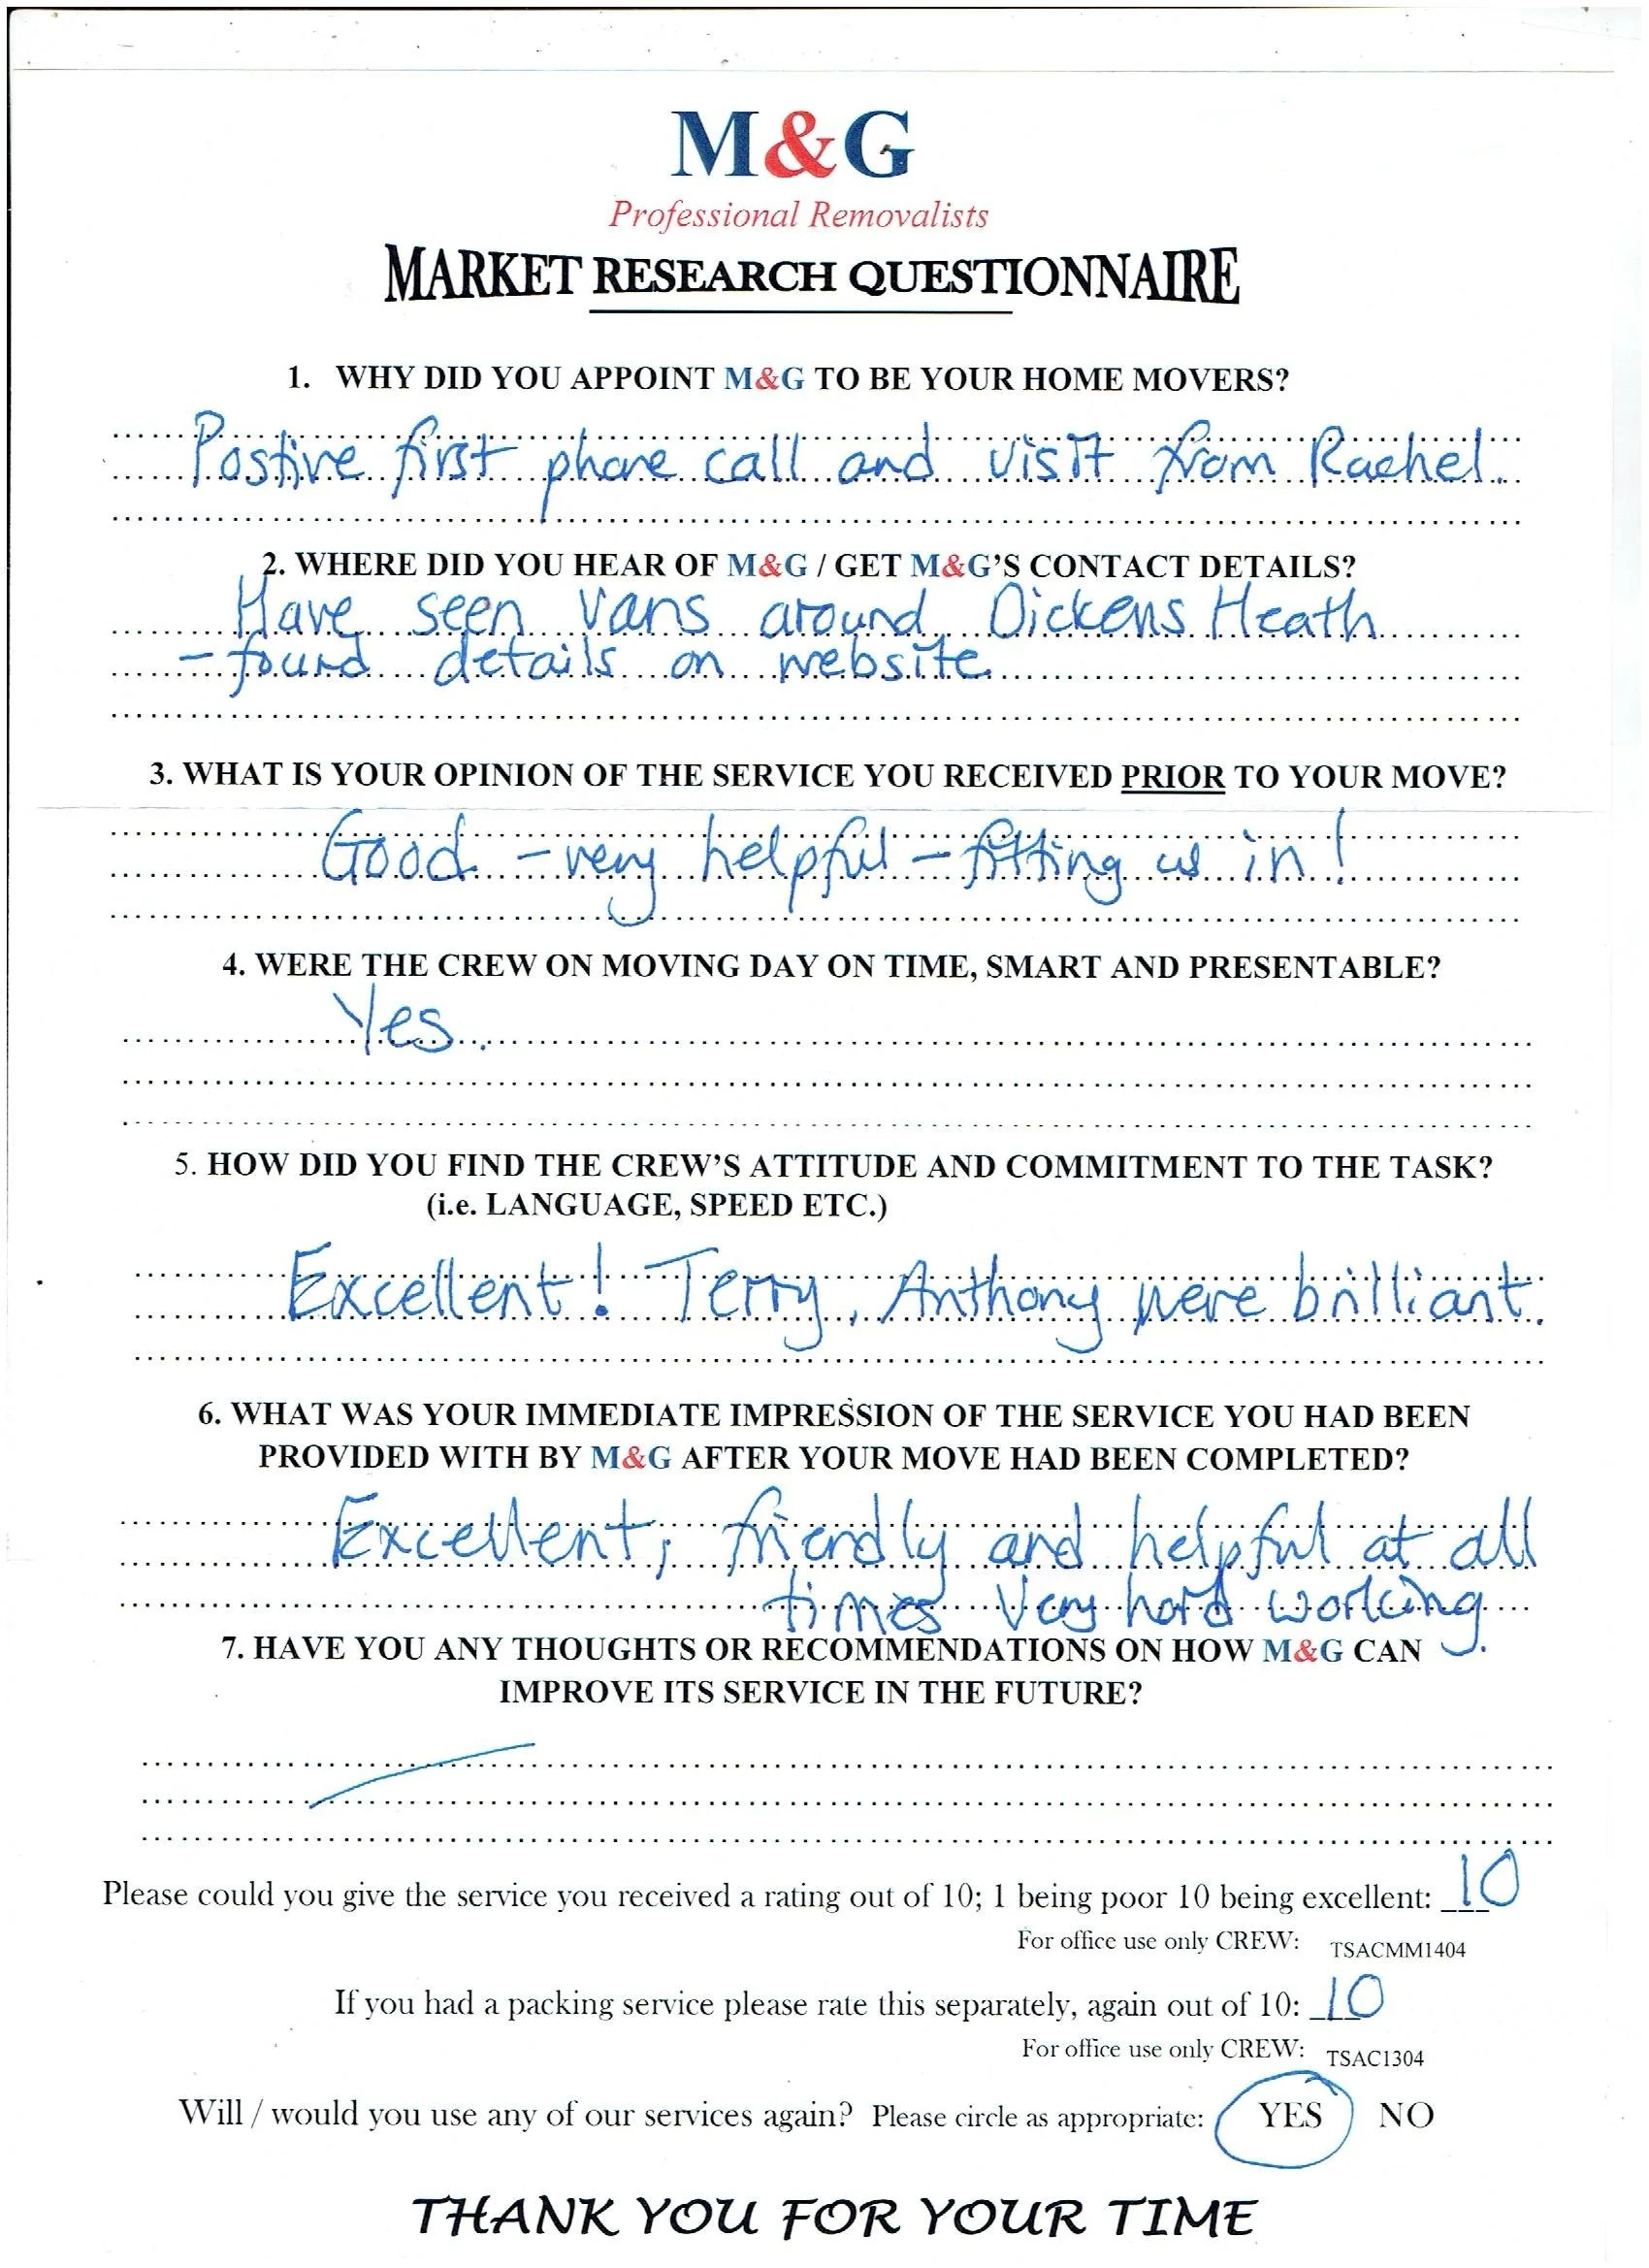 M&G
Professional Removalists
MARKET RESEARCH QUESTIONNAIRE
1. WHY DID YOU APPOINT M&G TO BE YOUR HOME MOVERS?
Postive first phone call and visit from Rachel.
2. WHERE DID YOU HEAR OF M&G / GET M&G'S CONTACT DETAILS?
Have seen vans around Dickens Heath
- found details on website.
3. WHAT IS YOUR OPINION OF THE SERVICE YOU RECEIVED PRIOR TO YOUR MOVE?
Good - very helpful - fitting us in!
4. WERE THE CREW ON MOVING DAY ON TIME, SMART AND PRESENTABLE?
Yes.
5. HOW DID YOU FIND THE CREW'S ATTITUDE AND COMMITMENT TO THE TASK?
(i.e. LANGUAGE, SPEED ETC.)
Excellent! Terry, Anthony were brilliant.
6. WHAT WAS YOUR IMMEDIATE IMPRESSION OF THE SERVICE YOU HAD BEEN
PROVIDED WITH BY M&G AFTER YOUR MOVE HAD BEEN COMPLETED?
Excellent, friendly and helpful at all
times Very hard working.
7. HAVE YOU ANY THOUGHTS OR RECOMMENDATIONS ON HOW M&G CAN
IMPROVE ITS SERVICE IN THE FUTURE?
Please could you give the service you received a rating out of 10; 1 being poor 10 being excellent: 10
For office use only CREW: TSACMM1404
If you had a packing service please rate this separately, again out of 10: 10
For office use only CREW: TSAC1304
Will / would you use any of our services again? Please circle as appropriate: YES NO
THANK YOU FOR YOUR TIME